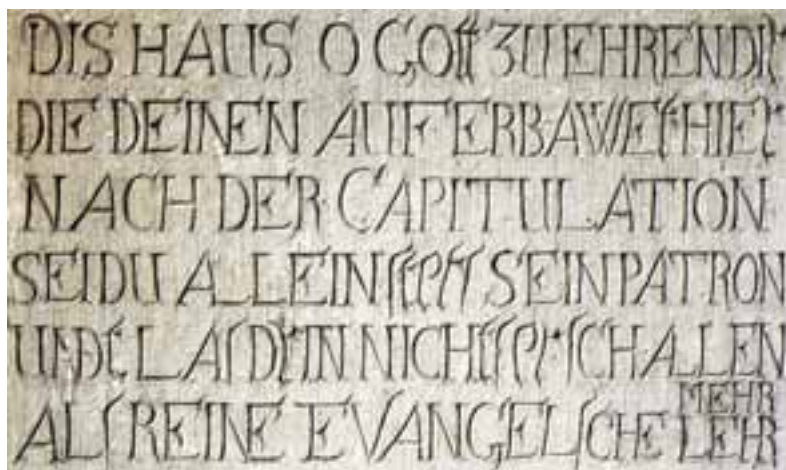 DIS HAUS O GOtt ZU EHREN DIR
DIE DEINEN AUFERBAWET HIER
NACH DER CAPITULATION
SEI DU ALLEIN SEIN PATRON
UND LAS DRIN NICHTS SCHALLEN MEHR
ALS REINE EVANGELSCHE LEHR